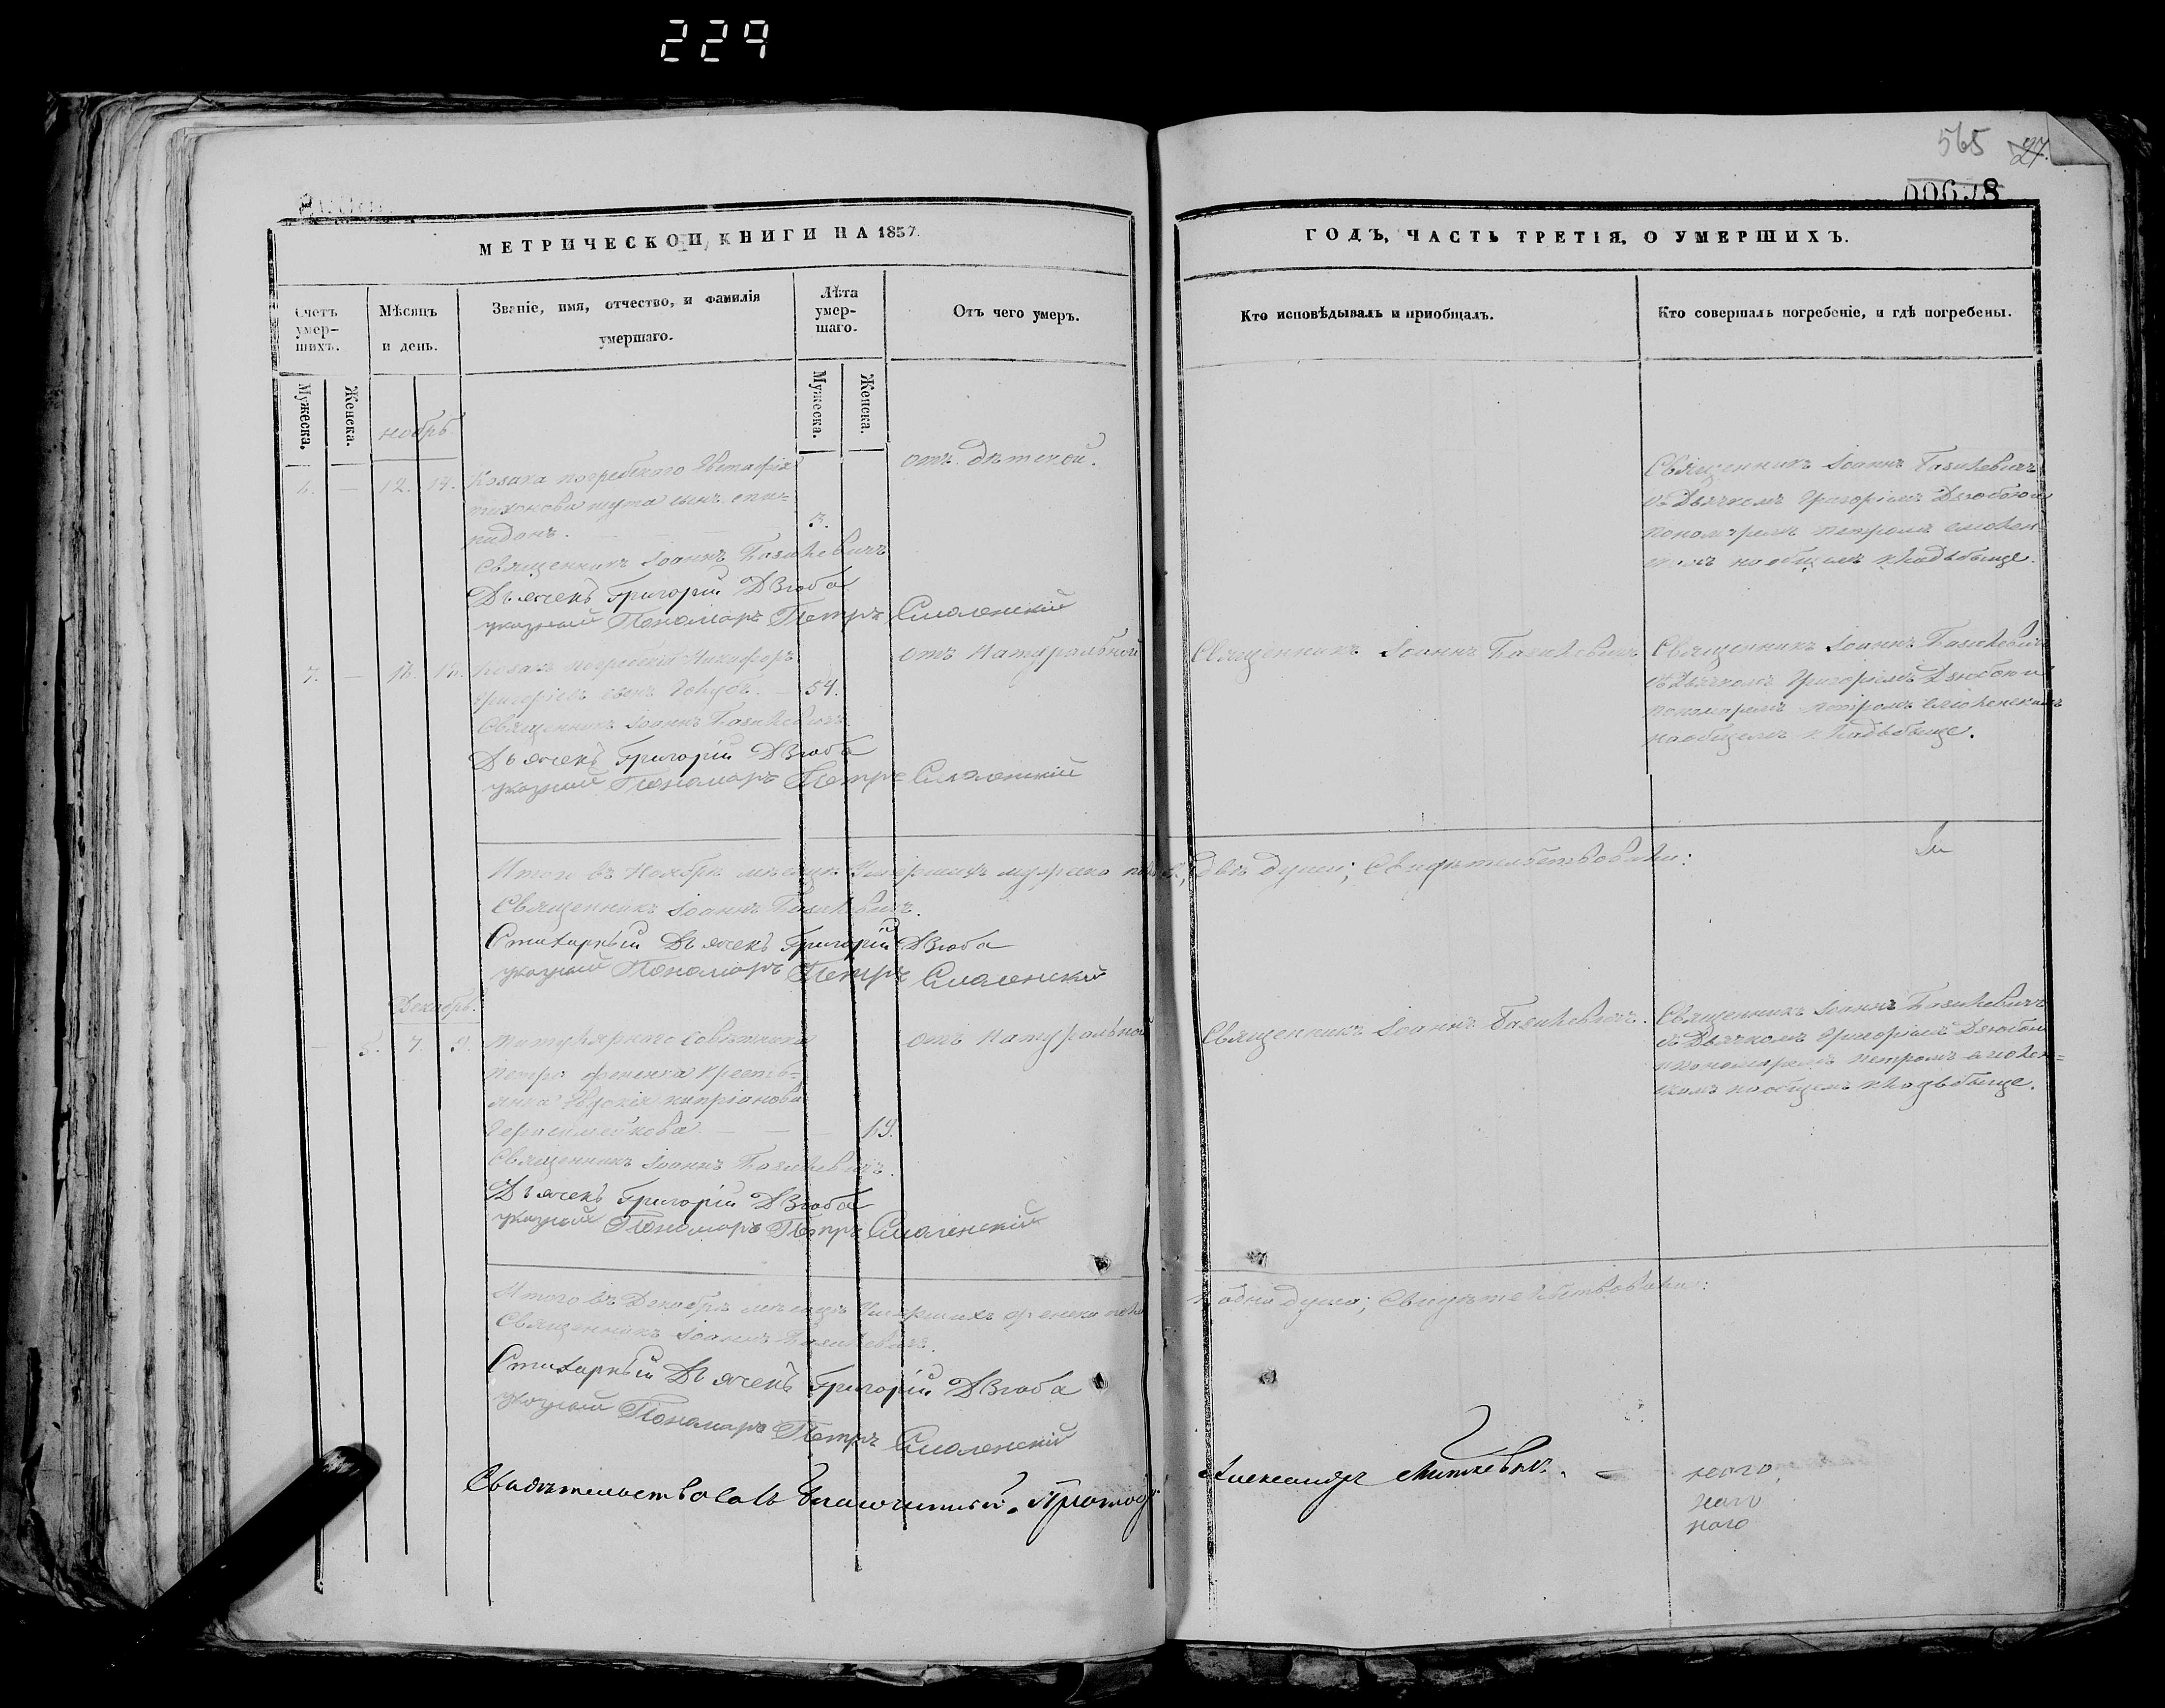 229
565 27.
00678
МЕТРИЧЕСКОЙ КНИГИ НА 1857
ГОДЪ, ЧАСТЬ ТРЕТІЯ, О УМЕРШИХЪ.
Счетъ умер-шихъ.
Мѣсяцъ и день.
Званіе, имя, отчество, и фамилія умершаго.
Лѣта умер-шаго.
Отъ чего умеръ.
Кто исповѣдывалъ и приобщалъ.
Кто совершалъ погребеніе, и гдѣ погребены.
Мужеска.
Женска.
Мужеска.
Женска.
ноябрь
6. — 12. 14. Козака погребскаго Евстафія
тихонова сынъ спи-
ридонъ. 3.
отъ дѣтской.
Священникъ Іоаннъ Базилевичъ
съ Дьячкомъ Григоріемъ Дзюбою и
пономаремъ петромъ смолен-
скимъ на общемъ кладбищѣ.
Священникъ Іоаннъ Базилевичъ
Дьячекъ Григорій Дзюба
указный Пономарь Петръ Смоленскій
7. — 16. 18. Козакъ погребскій Никифоръ
григоріевъ сынъ — 54.
отъ Натуральной
Священникъ Іоаннъ Базилевичъ
Священникъ Іоаннъ Базилевичъ
съ Дьячкомъ Григоріемъ Дзюбою и
пономаремъ петромъ смоленскимъ
на общемъ кладбищѣ.
Священникъ Іоаннъ Базилевичъ
Дьячекъ Григорій Дзюба
указный Пономарь Петръ Смоленскій
Итого въ Ноябрѣ мѣсяцѣ Умершихъ мужеска пола, двѣ души; Свидѣтельствовали:
Священникъ Іоаннъ Базилевичъ.
Стихарный Дьячекъ Григорій Дзюба
указный Пономарь Петръ Смоленскій
Декабрь.
— 5. 7. 9. Титулярнаго Совѣтника
Петра кресть-
янка Евдокія кипріанова
— 19.
отъ Натуральной
Священникъ Іоаннъ Базилевичъ.
Священникъ Іоаннъ Базилевичъ
съ Дьячкомъ Григоріемъ Дзюбою
и пономаремъ Петромъ смолен-
скимъ на общемъ кладбищѣ.
Священникъ Іоаннъ Базилевичъ.
Дьячекъ Григорій Дзюба
указный Пономарь Петръ Смоленскій
Итого въ Декабрѣ мѣсяцѣ Умершихъ женска пола одна душа; Свидѣтельствовали:
Священникъ Іоаннъ Базилевичъ.
Стихарный Дьячекъ Григорій Дзюба
указный Пономарь Петръ Смоленскій
Свидѣтельствовалъ Благочинный, Александръ